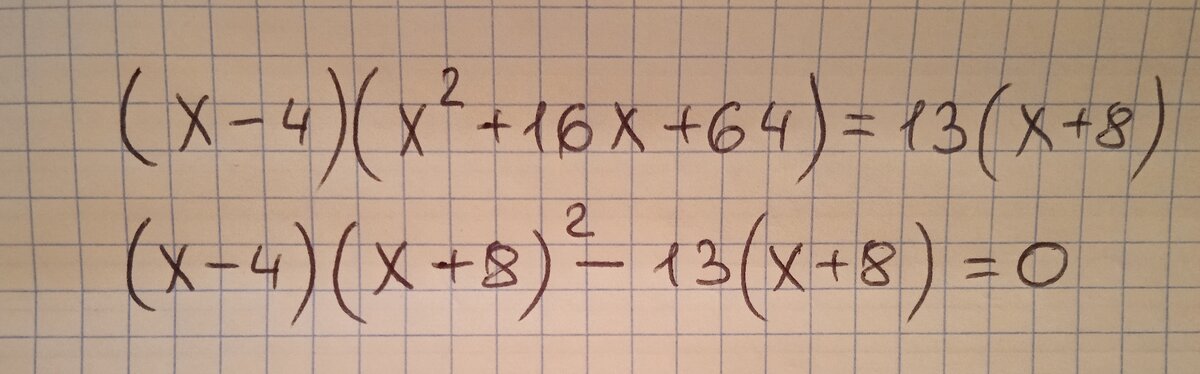 (x-4)(x²+16x+64)=13(x+8)
(x-4)(x+8)²-13(x+8)=0